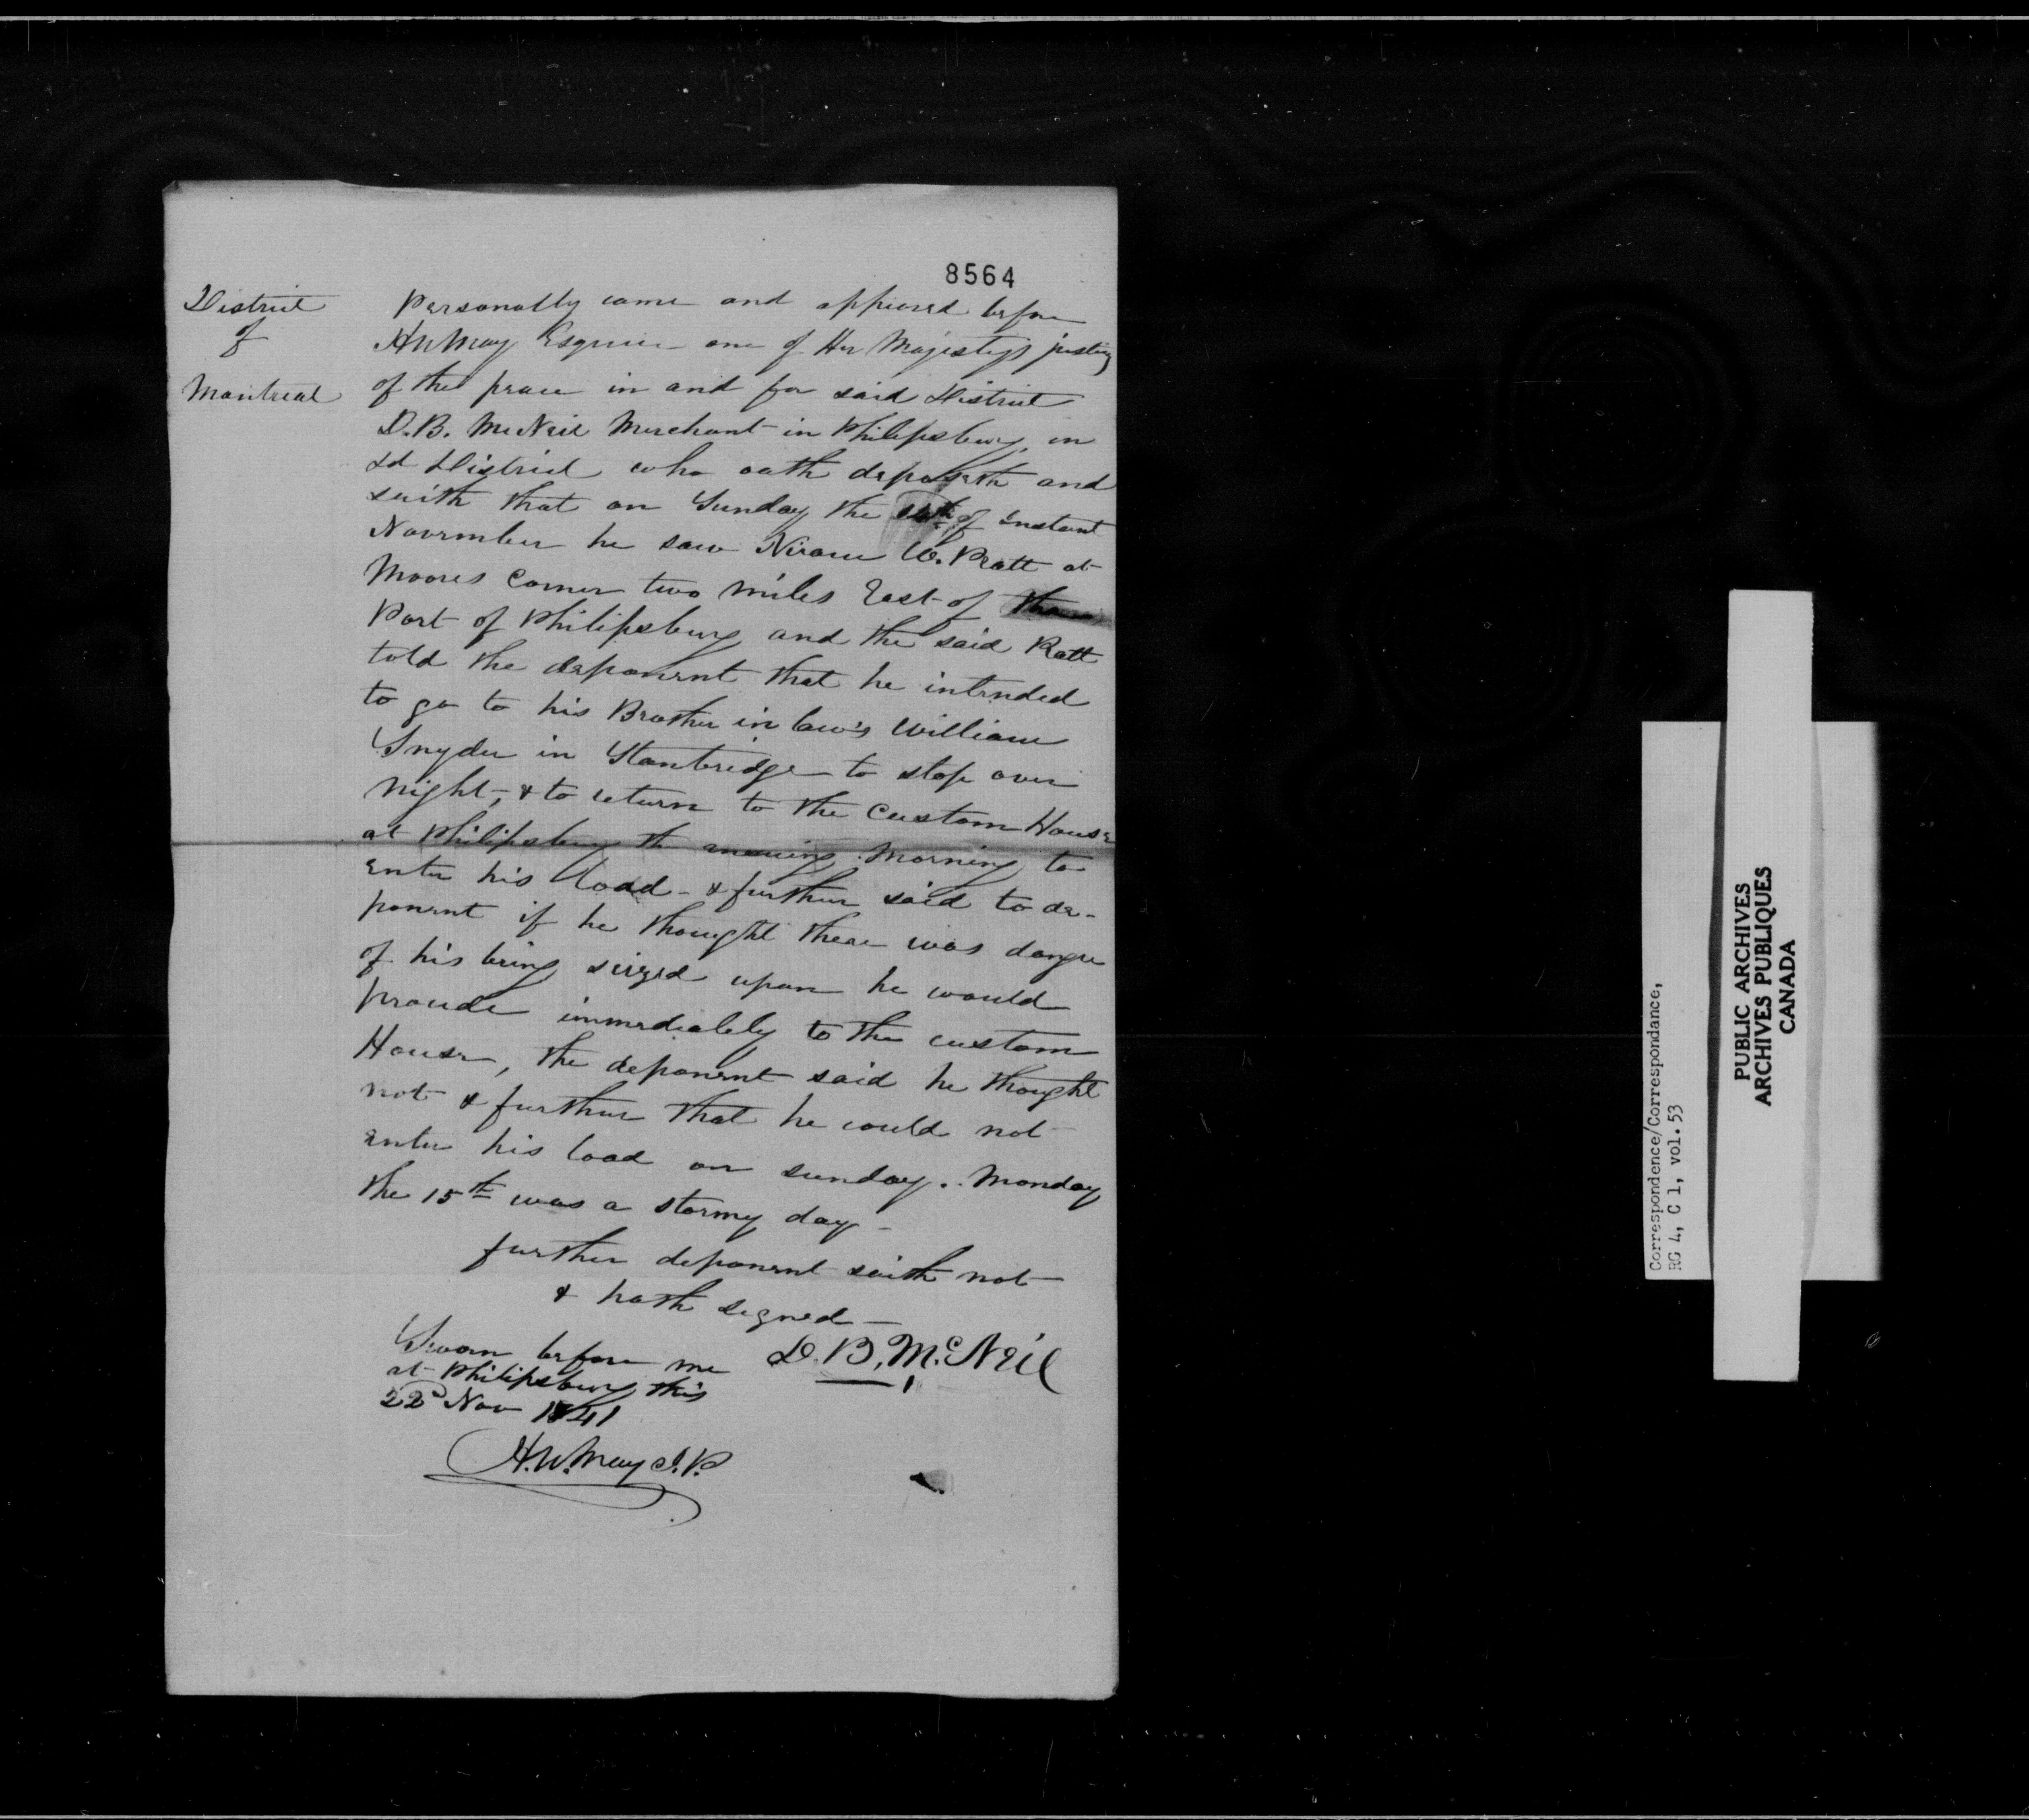 8564
District
of
Montreal
Personally came and appeared before
H.W May Esquire one of Her Majestys justices
of the peace in and for said District
D.B. McNeil Merchant in Philipsburg in
sd District who oath deposeth and
saith that on Sunday the of instant
November he saw W. Pratt at
Moores Corner two miles East of the
Port of Philipsburg and the said Pratt
told the deponent that he intended
to go to his Brother in law's William
Snyder in Stanbridge to stop over
night, & to return to the Custom House
at Philipsburg the morning to
enter his load - & further said to de-
ponent if he thought there was danger
of his being seized upon he would
procede immediately to the custom
House, the deponent said he thought
not & further that he could not
enter his load on sunday. Monday
the 15th was a stormy day -
further deponent saith not
& hath signed -
Sworn before me
at Philipsburg this
22d Nov 1841
D. B. McNeil
H.W. May J.P.
Correspondence/Correspondance,
RG 4, C 1, vol. 53
PUBLIC ARCHIVES
ARCHIVES PUBLIQUES
CANADA